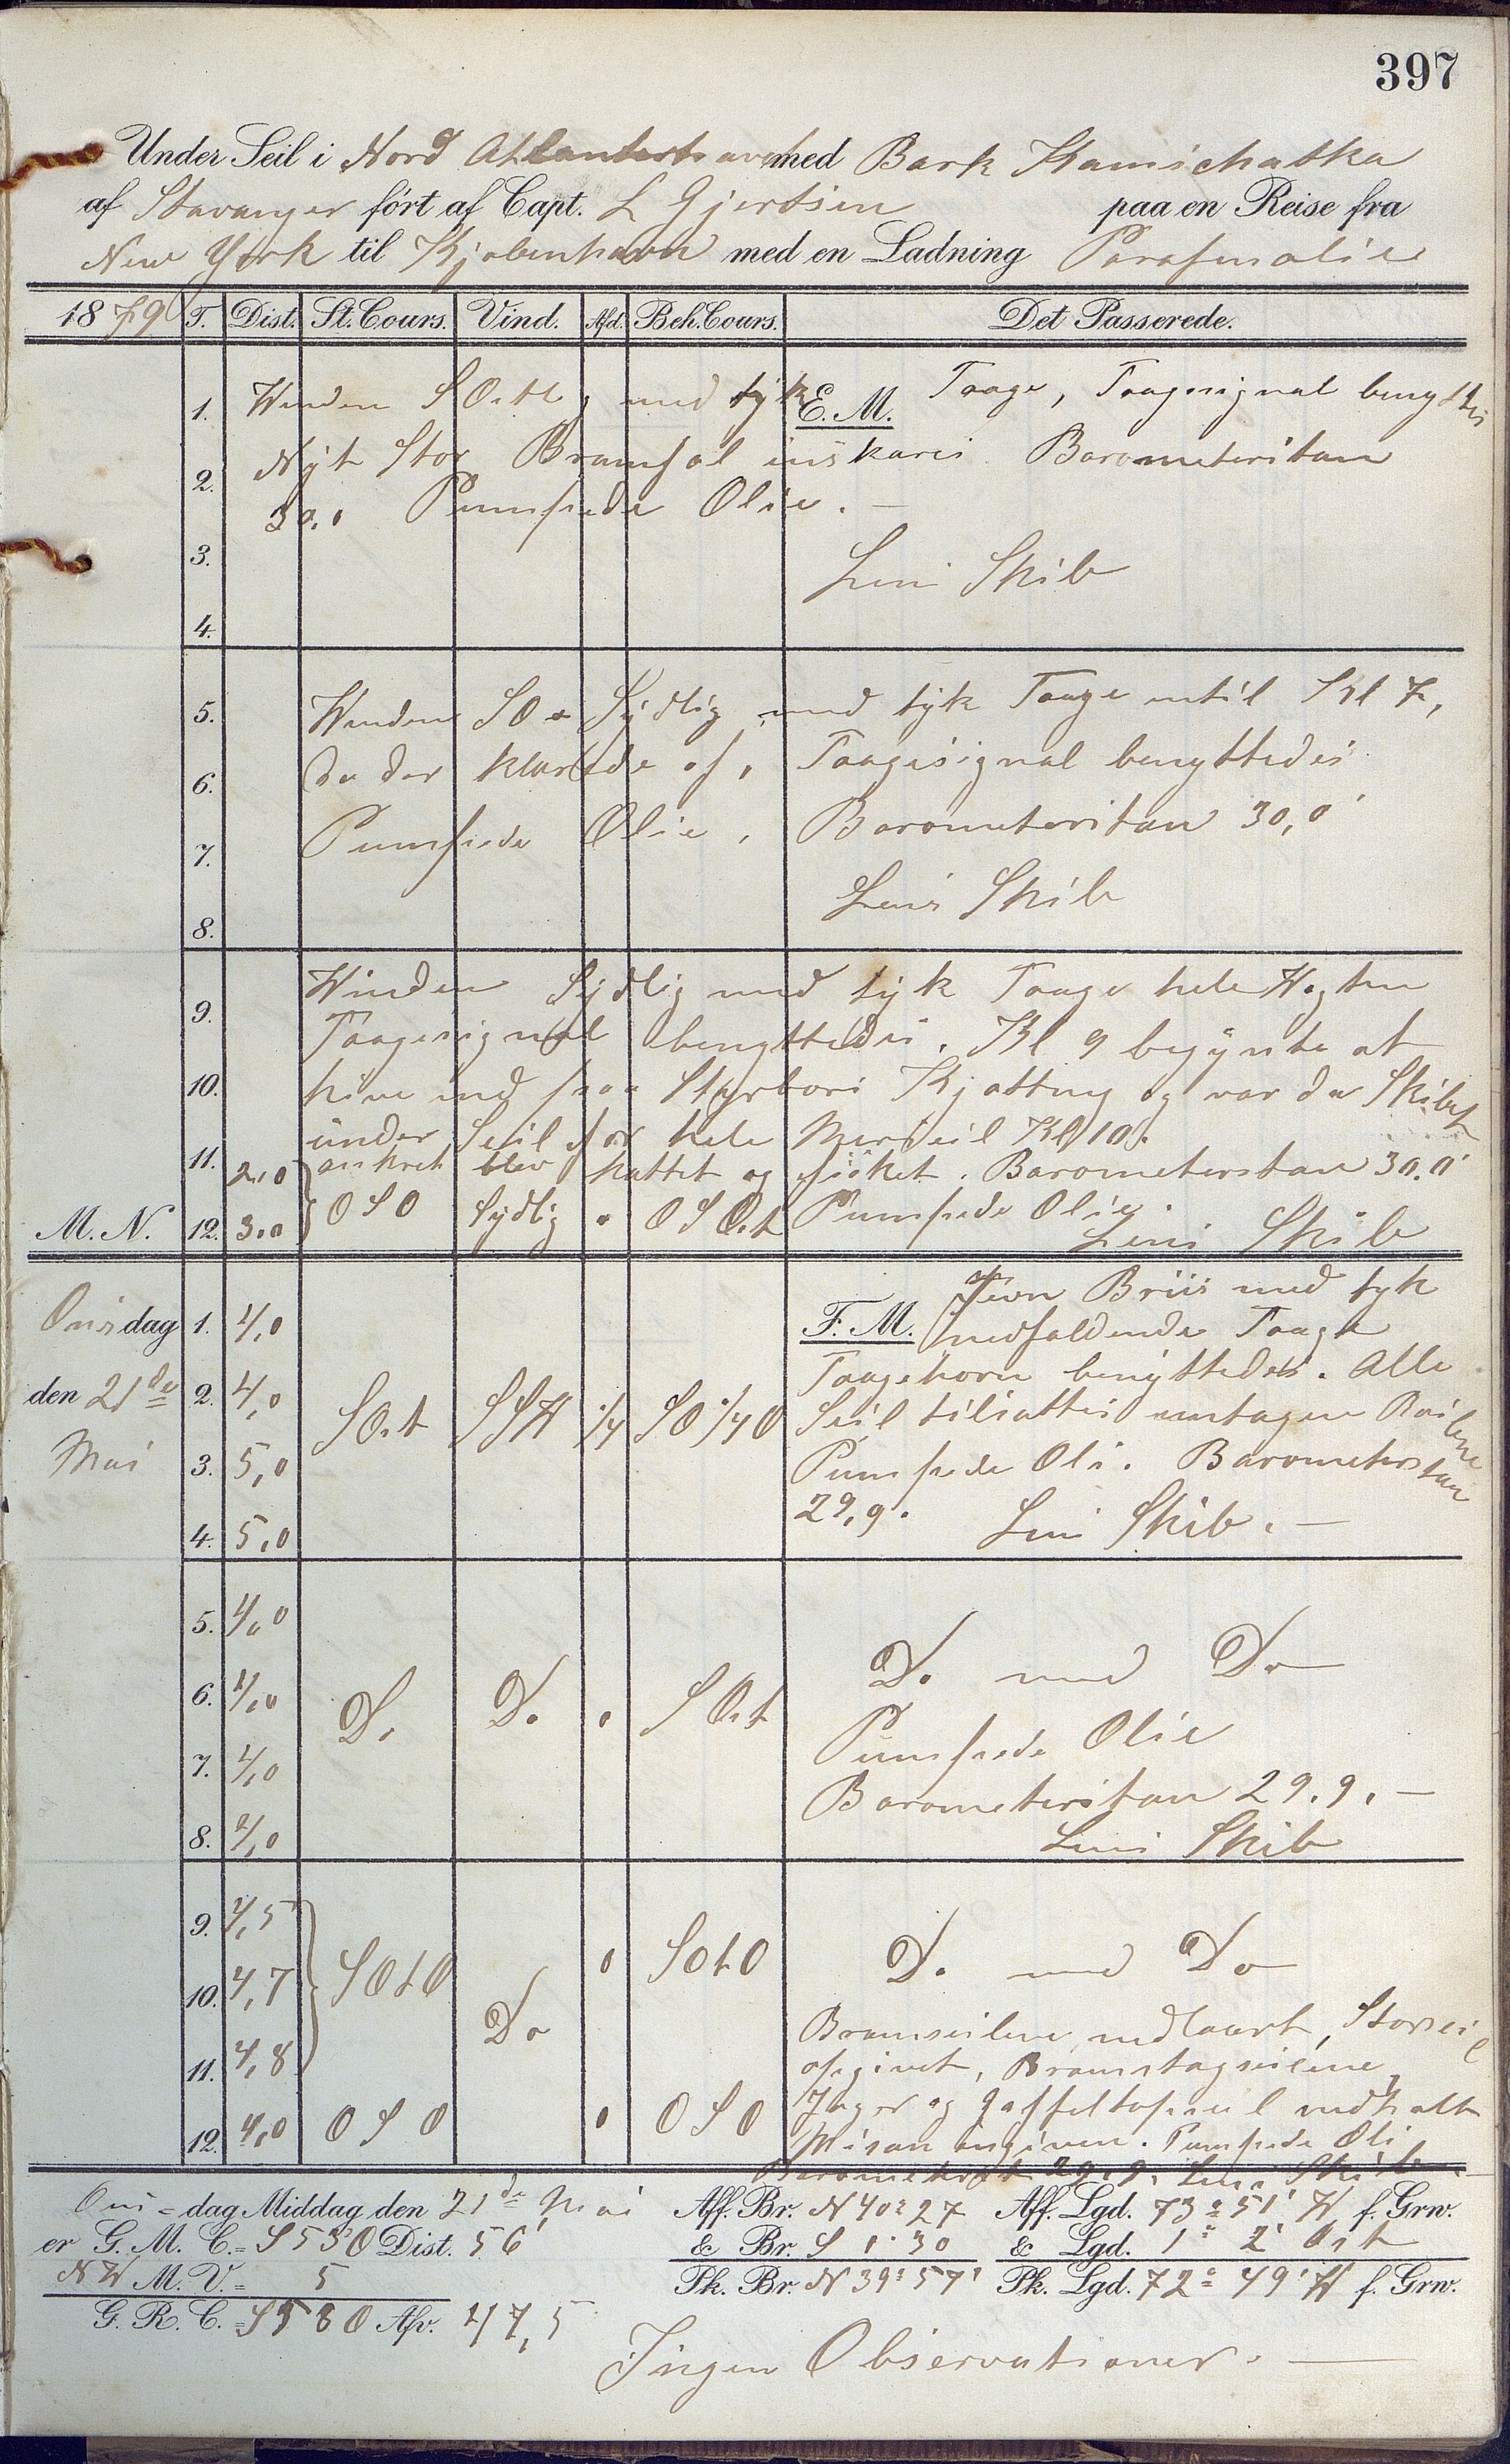 397
Under Seil i Nord Atlanterhavet med Bark Kamschatka
af Stavanger ført af Capt. L Gjertsen paa en Reise fra
New York til Kjøbenhavn med en Ladning Parafinolie
1879 T. Dist. St. Cours. Vind. Afd. Beh. Cours. Det Passerede.
1. Winden SOstl, med tyk E. M. Taage, Taagesignal benyttes
2. Nyt Stor Bramfal inskares. Barometerstan
30.0 Pumpede Olie. —
3. Lens Skib
4.
5. Winden SO - Sydlig, med tyk Taage intil Kl 7,
6. da der klarede af, Taagesignal benyttedes
7. Pumpede Olie, Barometerstan 30,0
Lens Skib
8.
9. Winden Sydlig med tyk Taage hele Wagten
Taagesignal benyttedes. Kl 9 begynte at
10. hive ind paa Styrbors Kjætting og var da Skibet
under Seil for hele Merseil Kl 10.
11. 2,0 ankret blev kattet og fisket. Barometerstan 30.0
M. N. 12. 3,0 OSO Sydlig 0 OSOst Pumpede Olie.
Lens Skib
Jevn Bris med tyk
Onsdag 1. 4,0 F. M. nedfaldende Taage
Taagehorn benyttedes. Alle
den 21de 2. 4,0 SOst SSW 1/4 SO 1/4 O Seil tilsattes untagen Roilene
Mai 3. 5,0 Pumpede Oli. Barometerstan
4. 5,0 29,9. Lens Skib. —
5. 4,0
6. 4,0 Do Do 0 SOst Do med Do
7. 4,0 Pumpede Olie
Barometerstan 29.9. —
8. 4,0 Lens Skib
9. 4,5
10. 4,7 SOtO Do 0 SOtO Do med Do
Bramseilene nedtaart, Storseil
11. 4,8 opgivet, Bramstagseilene,
Jager og Gaffeltopseil nedhalt
12. 4,0 OSO 0 OSO Misan ingiven. Pumpede Oli
Barometerst 29.9. Lens Skib —
Ons-dag Middag den 21de Mai Aff. Br. N 40° 27 Aff. Lgd. 73° 51' W f. Grw.
er G. M. C. = S 53 O Dist. 56' & Br. S 0° 30 & Lgd. 1° 2' Ost
NW M. V. = 5 Pk. Br. N 39° 57' Pk. Lgd. 72° 49' W f. Grw.
G. R. C. = S 58 O Afv. 47,5
Ingen Observationer. —